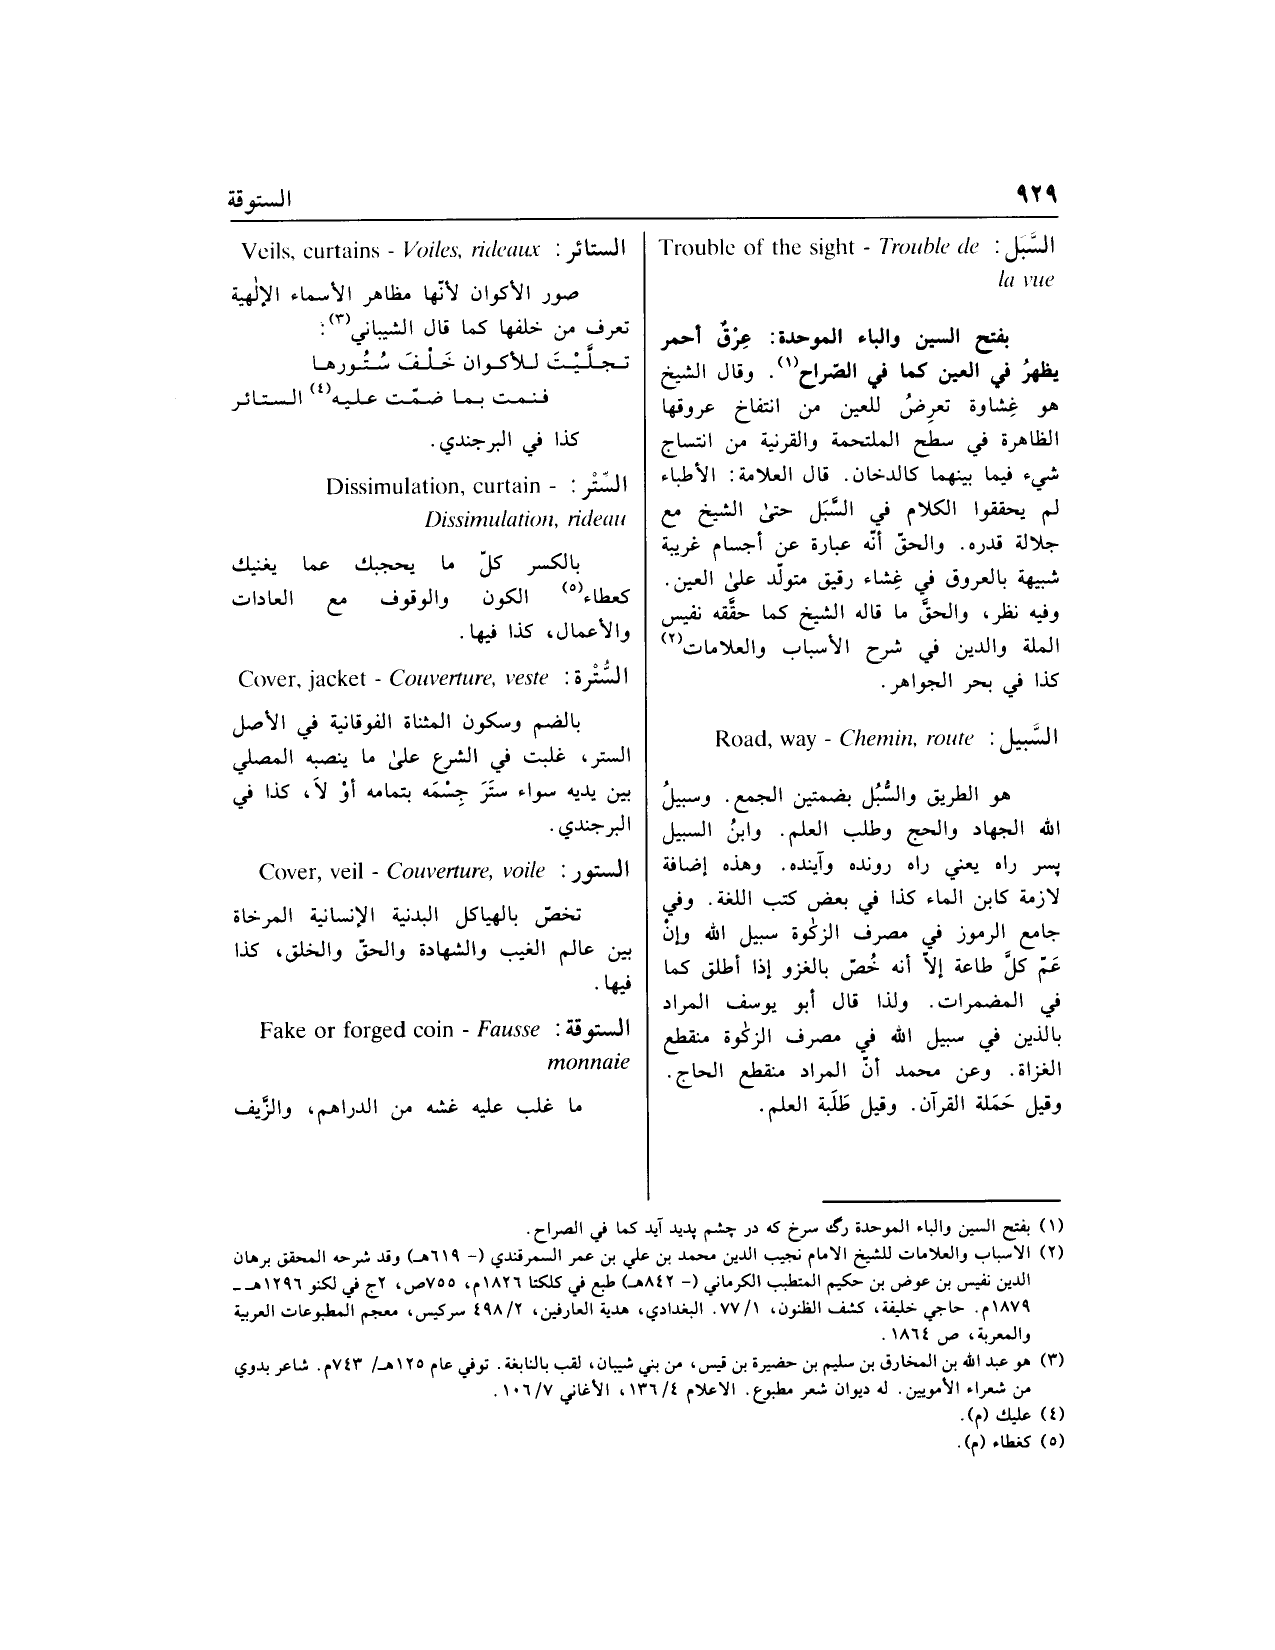 ٩٢٩
الستوقة
السَّبَل: Trouble of the sight - Trouble de
la vue
بفتح السين والباء الموحدة: عِرْقٌ أحمر
يظهرُ في العين كما في الصّراح(١). وقال الشيخ
هو غِشاوة تعرِضُ للعين من انتفاخ عروقها
الظاهرة في سطح الملتحمة والقرنية من انتساج
شيء فيما بينهما كالدخان. قال العلامة: الأطباء
لم يحققوا الكلام في السَّبَل حتىٰ الشيخ مع
جلالة قدره. والحقّ أنّه عبارة عن أجسام غريبة
شبيهة بالعروق في غِشاء رقيق متولّد علىٰ العين.
وفيه نظر، والحقَّ ما قاله الشيخ كما حقَّقه نفيس
الملة والدين في شرح الأسباب والعلامات(٢)
كذا في بحر الجواهر.
السَّبيل: Road, way - Chemin, route
هو الطريق والسُّبُل بضمتين الجمع. وسبيلُ
الله الجهاد والحج وطلب العلم. وابنُ السبيل
پسر راه يعني راه رونده وآينده. وهذه إضافة
لازمة كابن الماء كذا في بعض كتب اللغة. وفي
جامع الرموز في مصرف الزكٰوة سبيل الله وإنْ
عَمّ كلَّ طاعة إلاّ أنه خُصّ بالغزو إذا أطلق كما
في المضمرات. ولذا قال أبو يوسف المراد
بالذين في سبيل الله في مصرف الزكٰوة منقطع
الغزاة. وعن محمد أنّ المراد منقطع الحاج.
وقيل حَمَلة القرآن. وقيل طَلَبة العلم.
الستائر: Veils, curtains - Voiles, rideaux
صور الأكوان لأنّها مظاهر الأسماء الإلٰهية
تعرف من خلفها كما قال الشيباني(٣):
تـجـلَّـيْـتَ لـلأكـوان خَـلْـفَ سُـتُـورهـا
فـنـمـت بـمـا ضـمّـت عـلـيـه(٤) الـسـتـائـر
كذا في البرجندي.
السِّتْر: Dissimulation, curtain -
Dissimulation, rideau
بالكسر كلّ ما يحجبك عما يغنيك
كعطاء(٥) الكون والوقوف مع العادات
والأعمال، كذا فيها.
السُّتْرة: Cover, jacket - Couverture, veste
بالضم وسكون المثناة الفوقانية في الأصل
الستر، غلبت في الشرع علىٰ ما ينصبه المصلي
بين يديه سواء ستَرَ جِسْمَه بتمامه أوْ لاَ، كذا في
البرجندي.
الستور: Cover, veil - Couverture, voile
تخصّ بالهياكل البدنية الإنسانية المرخاة
بين عالم الغيب والشهادة والحقّ والخلق، كذا
فيها.
الستوقة: Fake or forged coin - Fausse
monnaie
ما غلب عليه غشه من الدراهم، والزَّيف
(١) بفتح السين والباء الموحدة رگ سرخ كه در چشم پديد آيد كما في الصراح.
(٢) الاسباب والعلامات للشيخ الامام نجيب الدين محمد بن علي بن عمر السمرقندي (- ٦١٩هـ) وقد شرحه المحقق برهان
الدين نفيس بن عوض بن حكيم المتطبب الكرماني (- ٨٤٢هـ) طبع في كلكتا ١٨٢٦م، ٧٥٥ص، ٢ج في لكنو ١٢٩٦هـ -
١٨٧٩م. حاجي خليفة، كشف الظنون، ٧٧/١. البغدادي، هدية العارفين، ٤٩٨/٢ سركيس، معجم المطبوعات العربية
والمعربة، ص ١٨٦٤.
(٣) هو عبد الله بن المخارق بن سليم بن حضيرة بن قيس، من بني شيبان، لقب بالنابغة. توفي عام ١٢٥هـ/ ٧٤٣م. شاعر بدوي
من شعراء الأمويين. له ديوان شعر مطبوع. الاعلام ١٣٦/٤، الأغاني ١٠٦/٧.
(٤) عليك (م).
(٥) كغطاء (م).